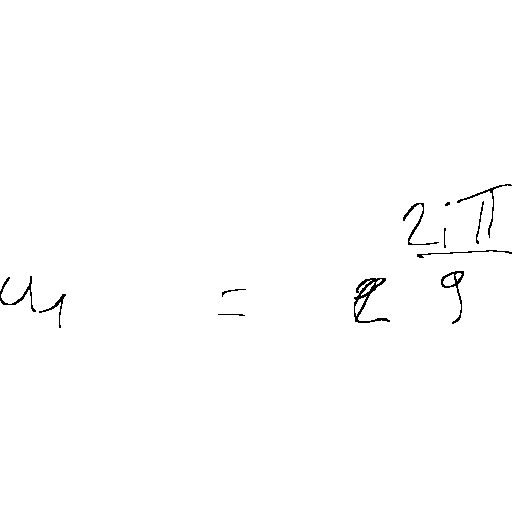 u_1 = e^{\frac{2i\pi}{9}}